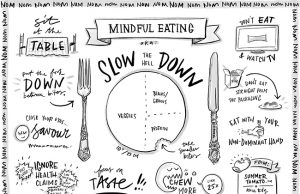 NOM NOM NOM NOM NOM NOM NOM NOM NOM NOM
sit
at the
TABLE
MINDFUL EATING
DON'T EAT
& WATCH TV
SLOW THE HELL DOWN
put the fork
DOWN
between bites
VEGGIES
GRAINS/
PROTEIN
DON'T EAT
STRAIGHT FROM
THE PACKAGING
CLOSE YOUR EYES
Savour
take
smaller
bites
EAT WITH YOUR
NON-DOMINANT HAND
IGNORE
HEALTH
CLAIMS
focus on
TASTE!!
CHEW
MORE
25x
SUMMER
TOMATO